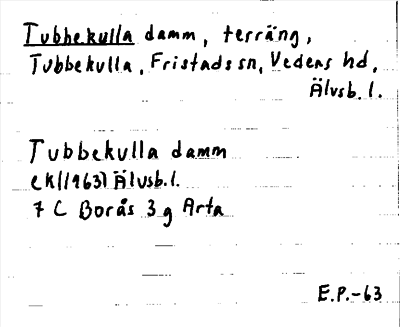 Tubbekulla damm, terräng,
Tubbekulla, Fristads sn, Vedens hd,
Älvsb. l.
Tubbekulla damm
EK(1963) Älvsb. l.
7 C Borås 3 g Arta
E.P.-63